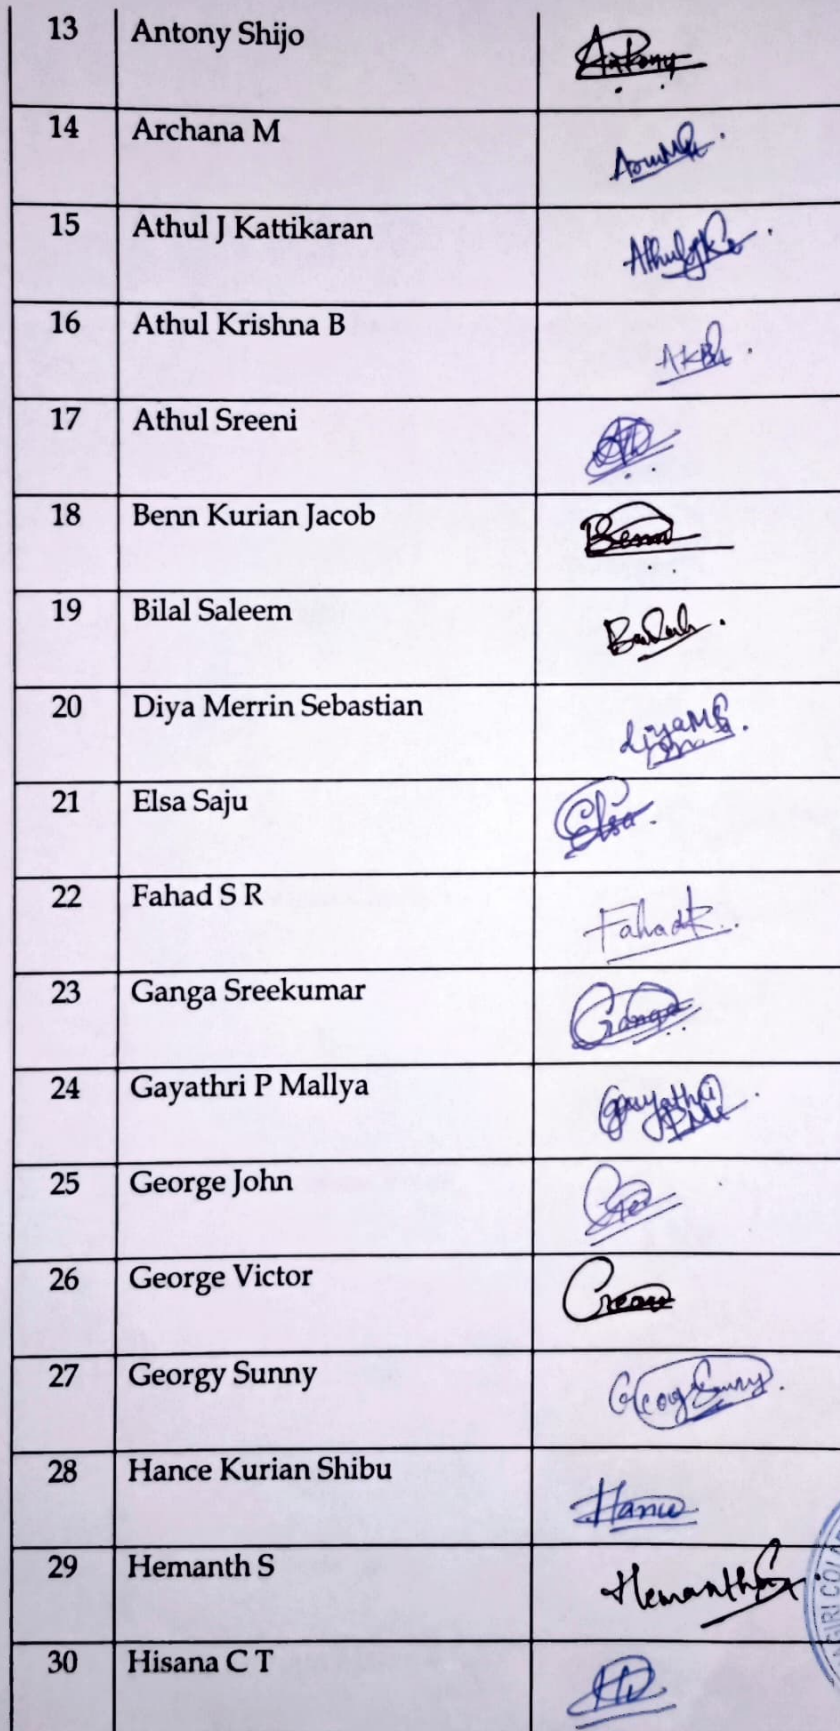 13 Antony Shijo Antony
14 Archana M
15 Athul J Kattikaran
16 Athul Krishna B
17 Athul Sreeni
18 Benn Kurian Jacob Benn
19 Bilal Saleem
20 Diya Merrin Sebastian
21 Elsa Saju Elsa
22 Fahad S R
23 Ganga Sreekumar Ganga
24 Gayathri P Mallya
25 George John
26 George Victor
27 Georgy Sunny
28 Hance Kurian Shibu
29 Hemanth S
30 Hisana C T